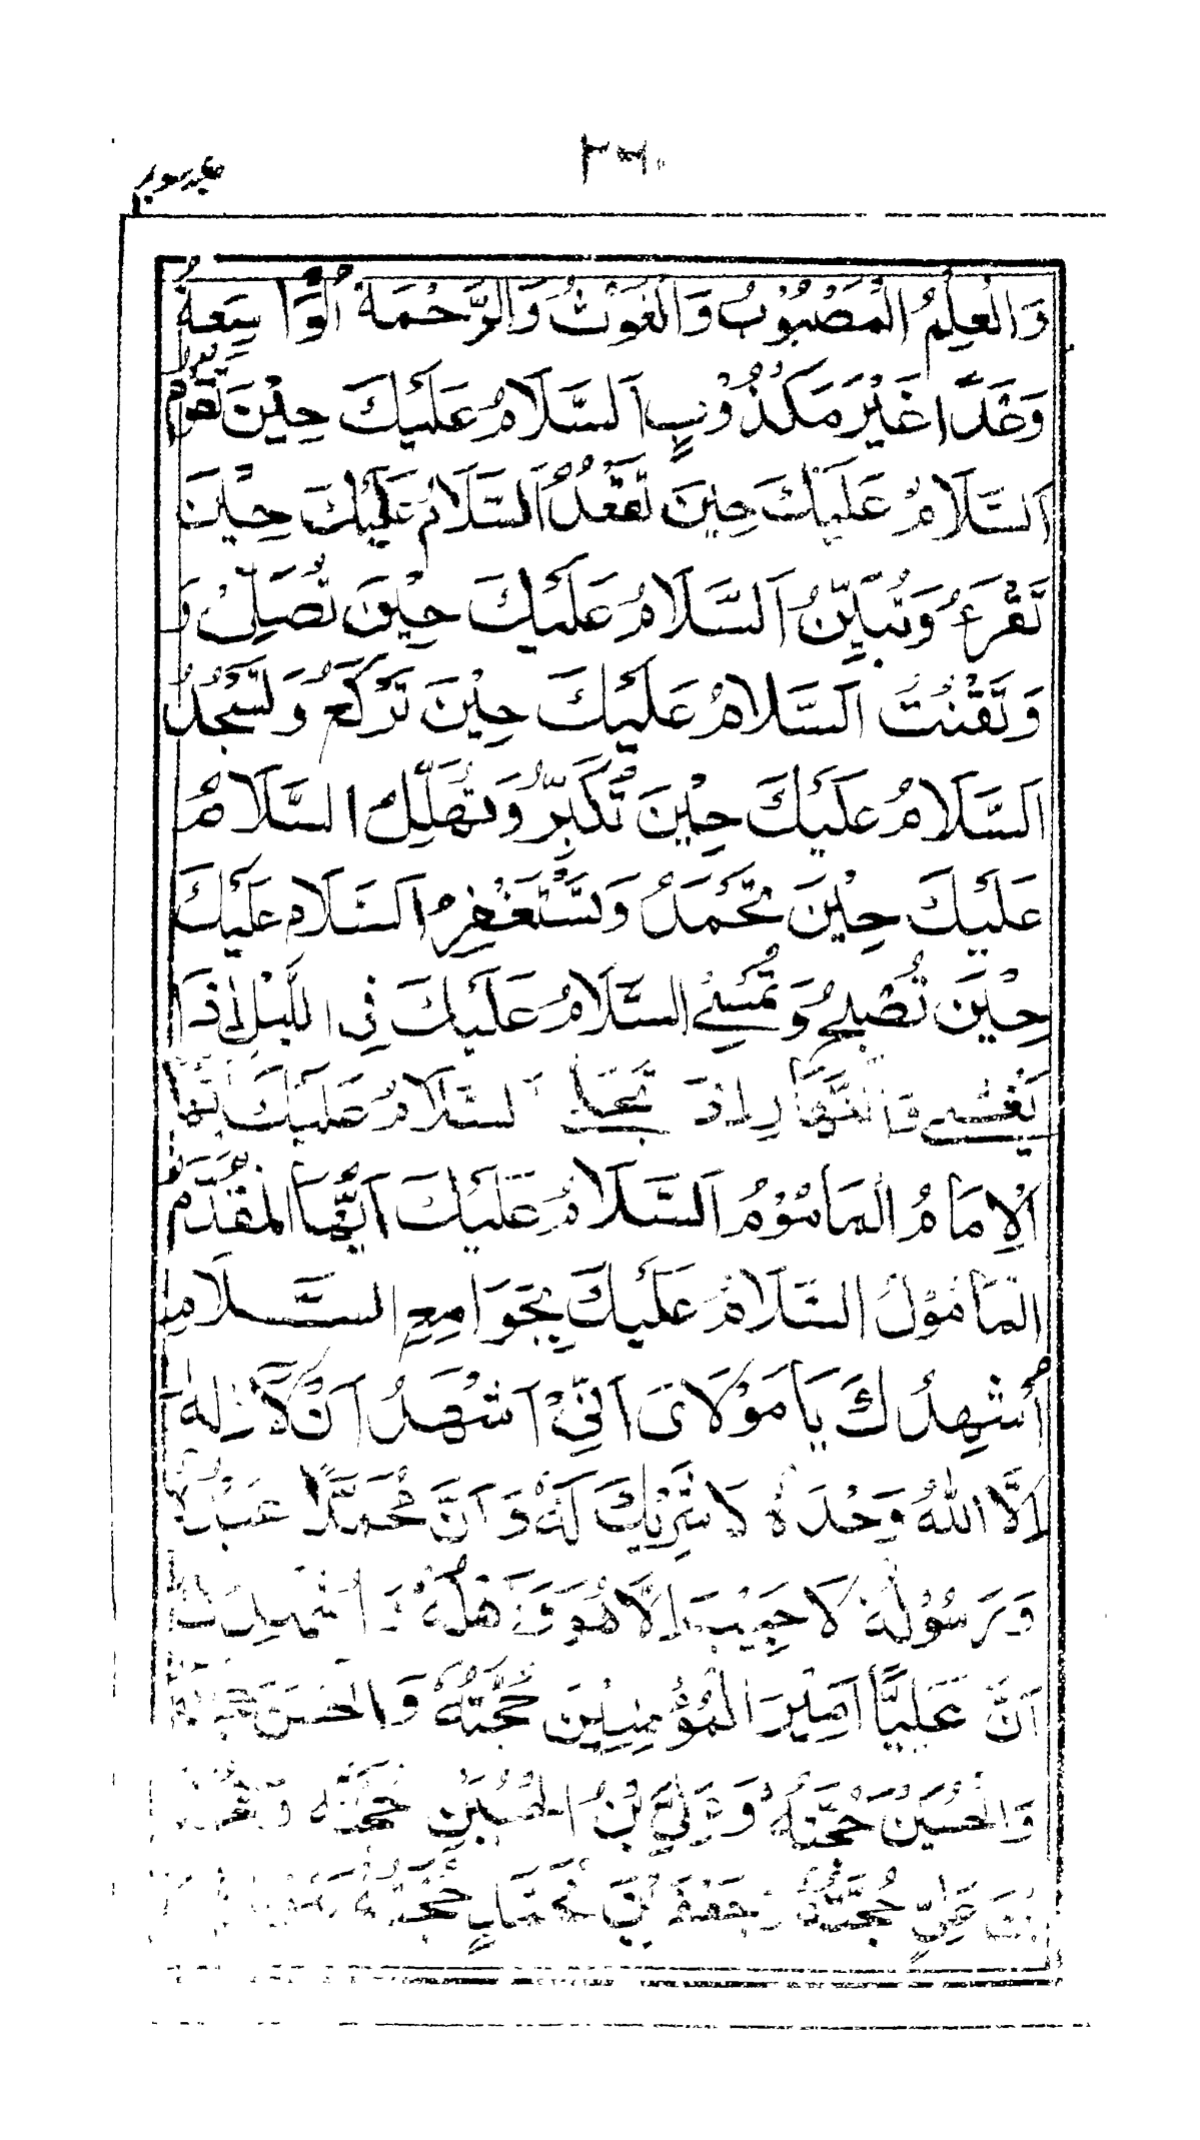 ٢٦٠
وَالْعِلْمُ الْمَصْبُوْبُ وَالْغَوْثُ وَالرَّحْمَةُ الْوَاسِعَةُ
وَعْدًا غَيْرَ مَكْذُوْبٍ اَلسَّلَامُ عَلَيْكَ حِيْنَ تَقُوْمُ
اَلسَّلَامُ عَلَيْكَ حِيْنَ تَقْعُدُ اَلسَّلَامُ عَلَيْكَ حِيْنَ
تَقْرَءُ وَتُبَيِّنُ اَلسَّلَامُ عَلَيْكَ حِيْنَ تُصَلِّىْ وَ
وَتَقْنُتُ اَلسَّلَامُ عَلَيْكَ حِيْنَ تَرْكَعُ وَتَسْجُدُ
اَلسَّلَامُ عَلَيْكَ حِيْنَ تُكَبِّرُ وَتُهَلِّلُ السَّلَامُ
عَلَيْكَ حِيْنَ تَحْمَدُ وَتَسْتَغْفِرُ اَلسَّلَامُ عَلَيْكَ
حِيْنَ تُصْبِحُ وَتُمْسِىْ السَّلَامُ عَلَيْكَ فِى اللَّيْلِ اِذَا
يَغْشٰى وَالنَّهَارِ اِذَ تَجَلّٰى اَلسَّلَامُ عَلَيْكَ اَيُّهَا
الْاِمَامُ الْمَامُوْمُ اَلسَّلَامُ عَلَيْكَ اَيُّهَا الْمُقَدَّمُ
الْمَامُوْلُ السَّلَامُ عَلَيْكَ بِجَوَامِعِ السَّلَامِ
اُشْهِدُكَ يَا مَوْلَاىَ اَنِّىْ اَشْهَدُ اَنْ لَا اِلٰهَ
اِلَّا اللهُ وَحْدَهُ لَا شَرِيْكَ لَهُ وَاَنَّ مُحَمَّدًا عَبْدُهُ
وَرَسُوْلُهُ لَا حَبِيْبَ اِلَّا هُوَ وَاَهْلُهُ وَاُشْهِدُكَ
اَنَّ عَلِيًّا اَمِيْرَ الْمُؤْمِنِيْنَ حُجَّتُهُ وَالْحَسَنَ حُجَّتُهُ
وَالْحُسَيْنَ حُجَّتُهُ وَعَلِىَّ بْنَ الْحُسَيْنِ حُجَّتُهُ وَمُحَمَّدَ
بْنَ عَلِىٍّ حُجَّتُهُ وَجَعْفَرَ بْنَ مُحَمَّدٍ حُجَّتُهُ